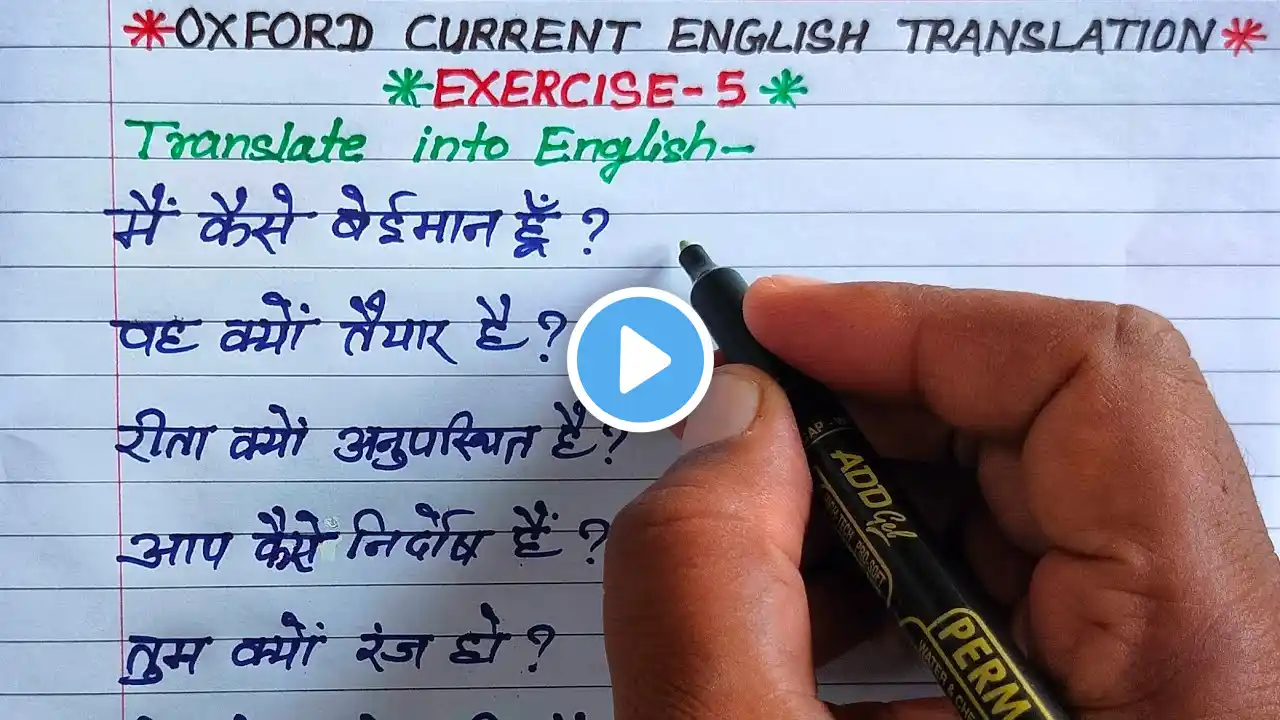 *OXFORD CURRENT ENGLISH TRANSLATION*
*EXERCISE-5*
Translate into English-
मैं कैसे बेईमान हूँ ?
वह क्यों तैयार है ?
रीता क्यों अनुपस्थित है ?
आप कैसे निर्दोष हैं ?
तुम क्यों रंज हो ?
ADD Gel
PERM